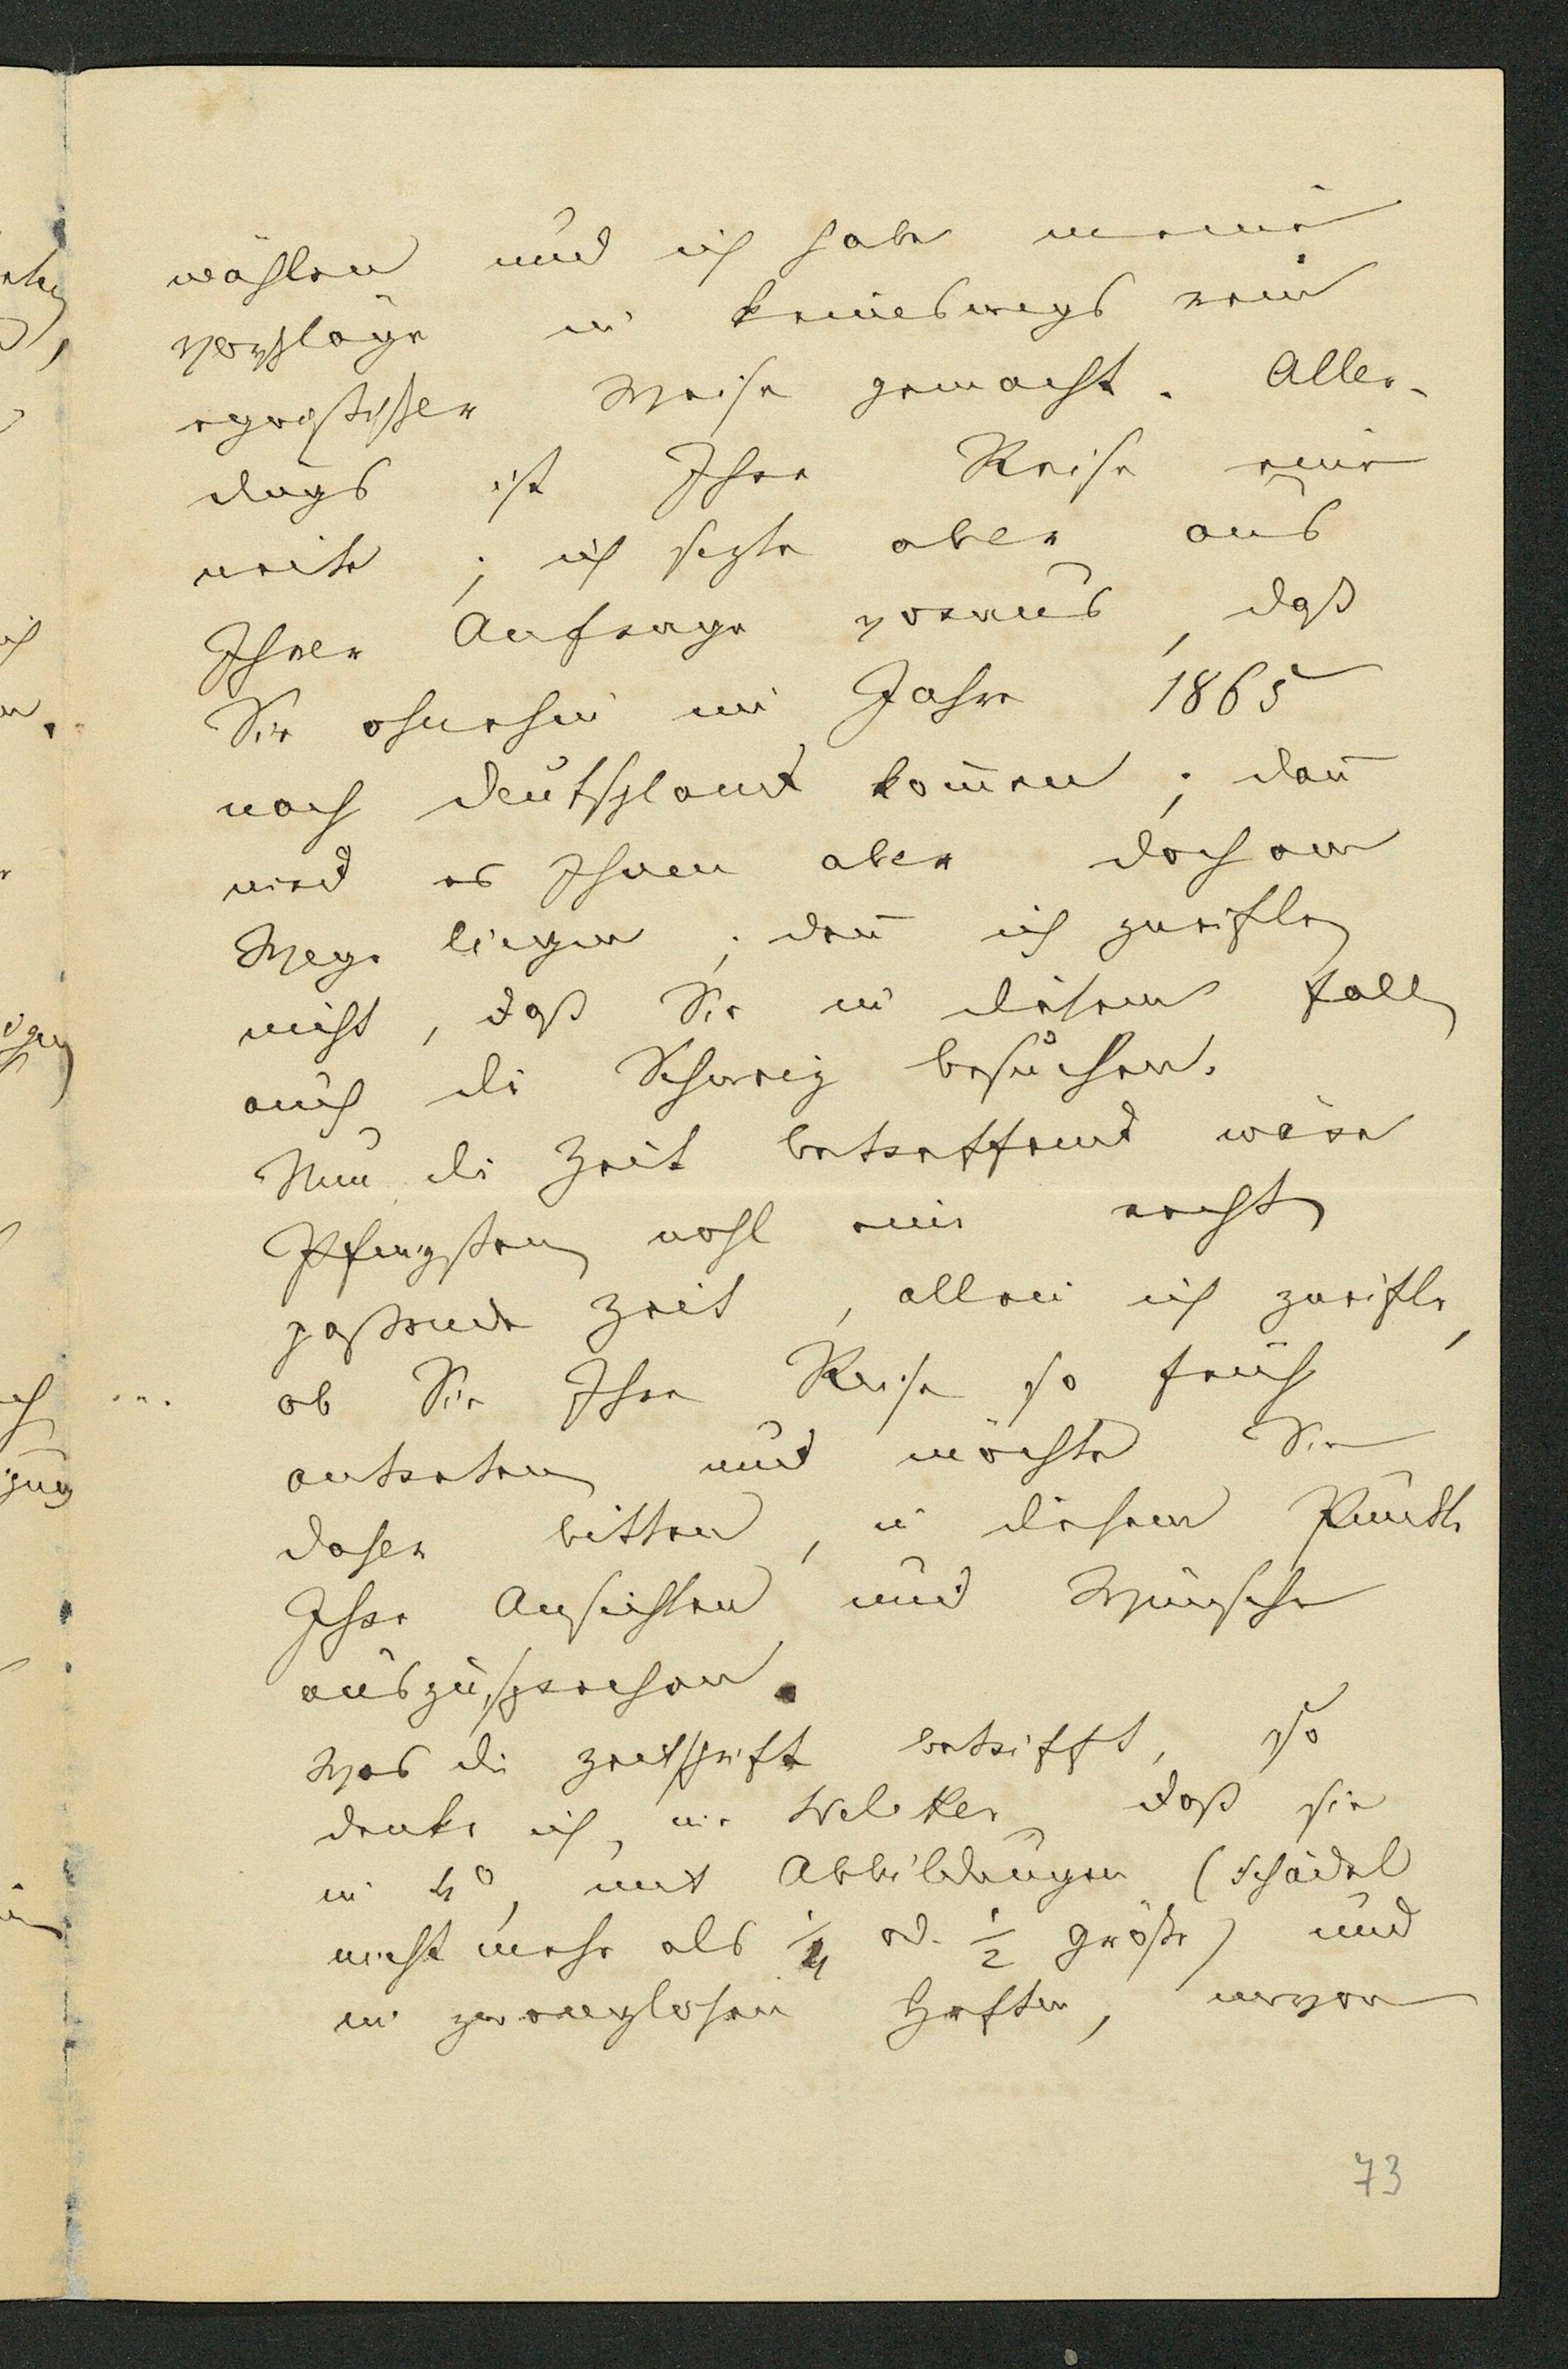 wählen und ich habe meine
Vorschläge in keineswegs rein
egoistischer Weise gemacht. Aller-
dings ist Ihre Reise eine
weite; ich setzte aber aus
Ihrer Anfrage voraus, daß
Sie ohnehin im Jahre 1865
nach Deutschland kom̅en; dan̅
wird es Ihnen aber doch am
Wege liegen; den̅ ich zweifle
nicht, daß Sie in diesem Fall
auch die Schweiz besuchen.
Nun die Zeit betreffend wäre
Pfingsten wohl eine recht
passende Zeit, allein ich zweifle,
ob Sie Ihre Reise so früh
antreten und möchte Sie
daher bitten, in diesem Punkte
Ihre Ansichten und Wünsche
auszusprechen.
Was die Zeitschrift betrifft, so
denke ich, wie Welcker, daß sie
in 4°, mit Abbildungen (Schädel
nicht mehr als 1/4 od. 1/2 Größe) und
in zwanglosen Heften, wovon
73